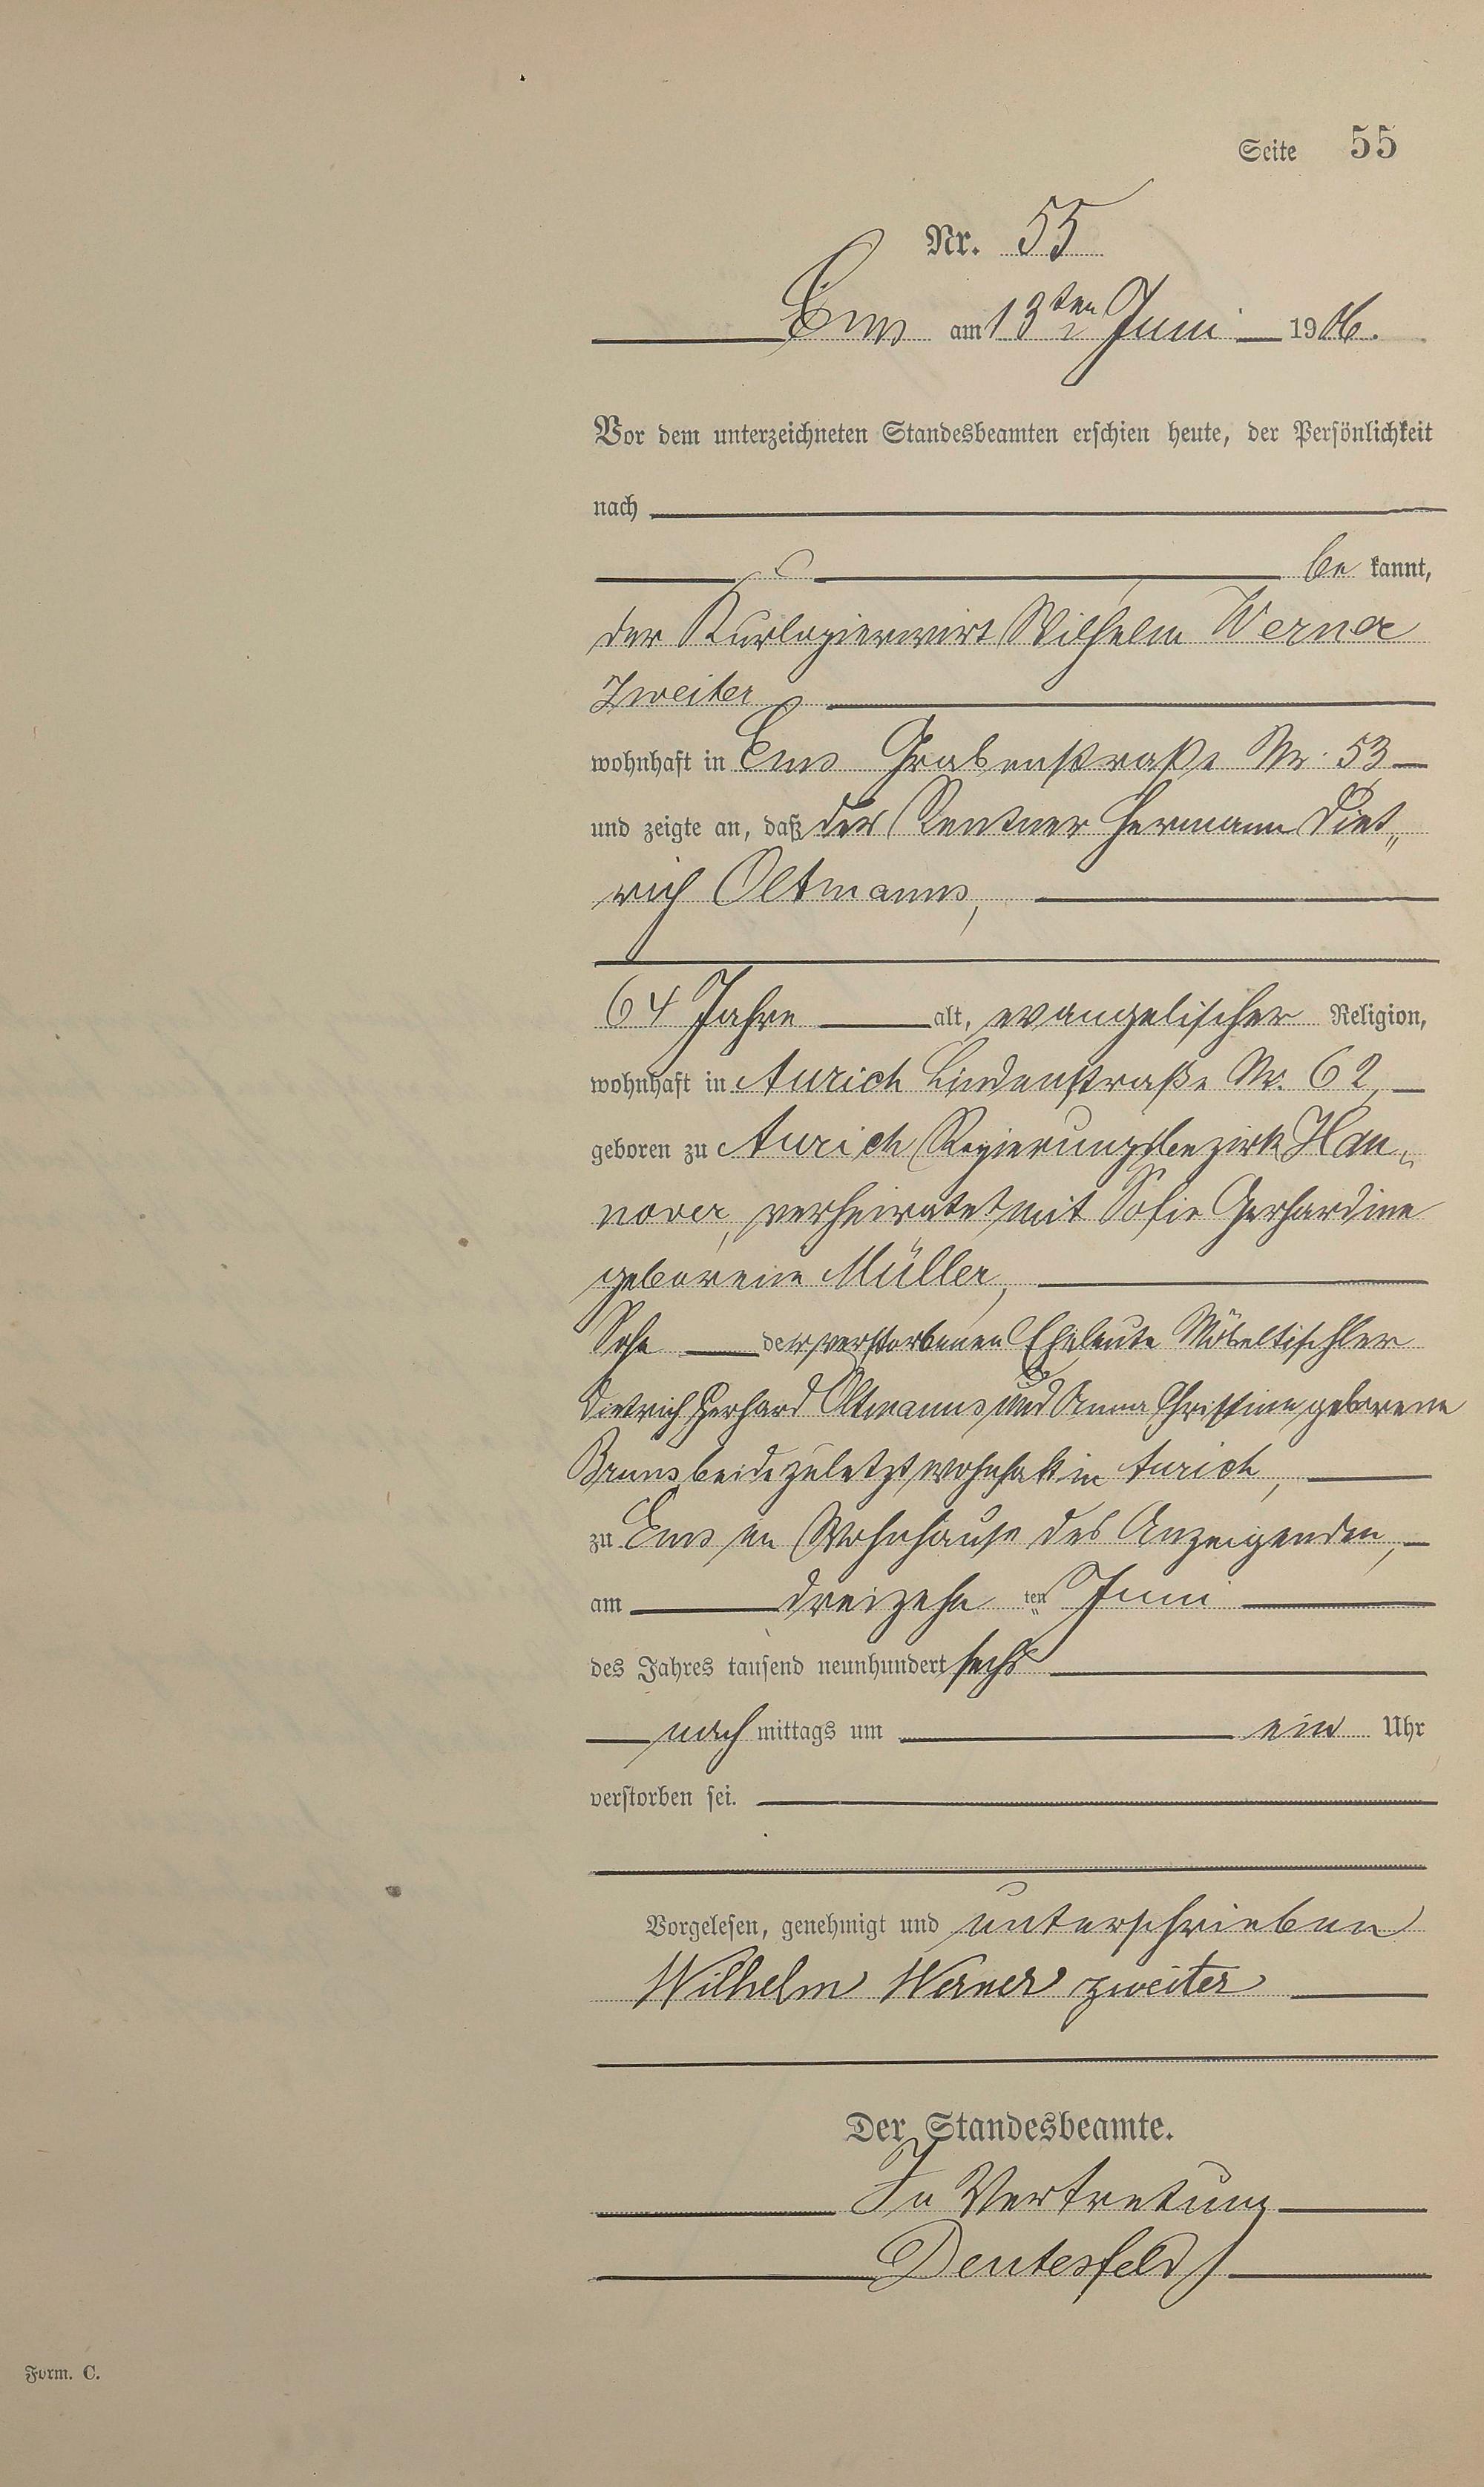 Seite 55
Nr. 55
Ems am 13ten Juni 1906.
Vor dem unterzeichneten Standesbeamten erschien heute, der Persönlichkeit
nach
be kannt,
der Kurlogierwirt Wilhelm Werner
Zweiter
wohnhaft in Ems Grabenstraße Nr. 53
und zeigte an, daß der Rentner Hermann Diet„
rich Oltmanns,
64 Jahre alt, evangelischer Religion,
wohnhaft in Aurich Lindenstraße Nr. 62,
geboren zu Aurich Regierungsbezirk Han„
nover, verheiratet mit Sofie Gerhardine
geborene Müller,
Sohn der verstorbenen Eheleute Möbeltischler
Dietrich Gerhard Oltmanns und Anna Christine geborene
Bruns, beide zuletzt wohnhaft in Aurich,
zu Ems im Wohnhause des Anzeigenden,
am dreizehn ten Juni
des Jahres tausend neunhundert sechs
nach mittags um ein Uhr
verstorben sei.
Vorgelesen, genehmigt und unterschrieben
Wilhelm Werner zweiter
Der Standesbeamte.
In Vertretung
Form. C.